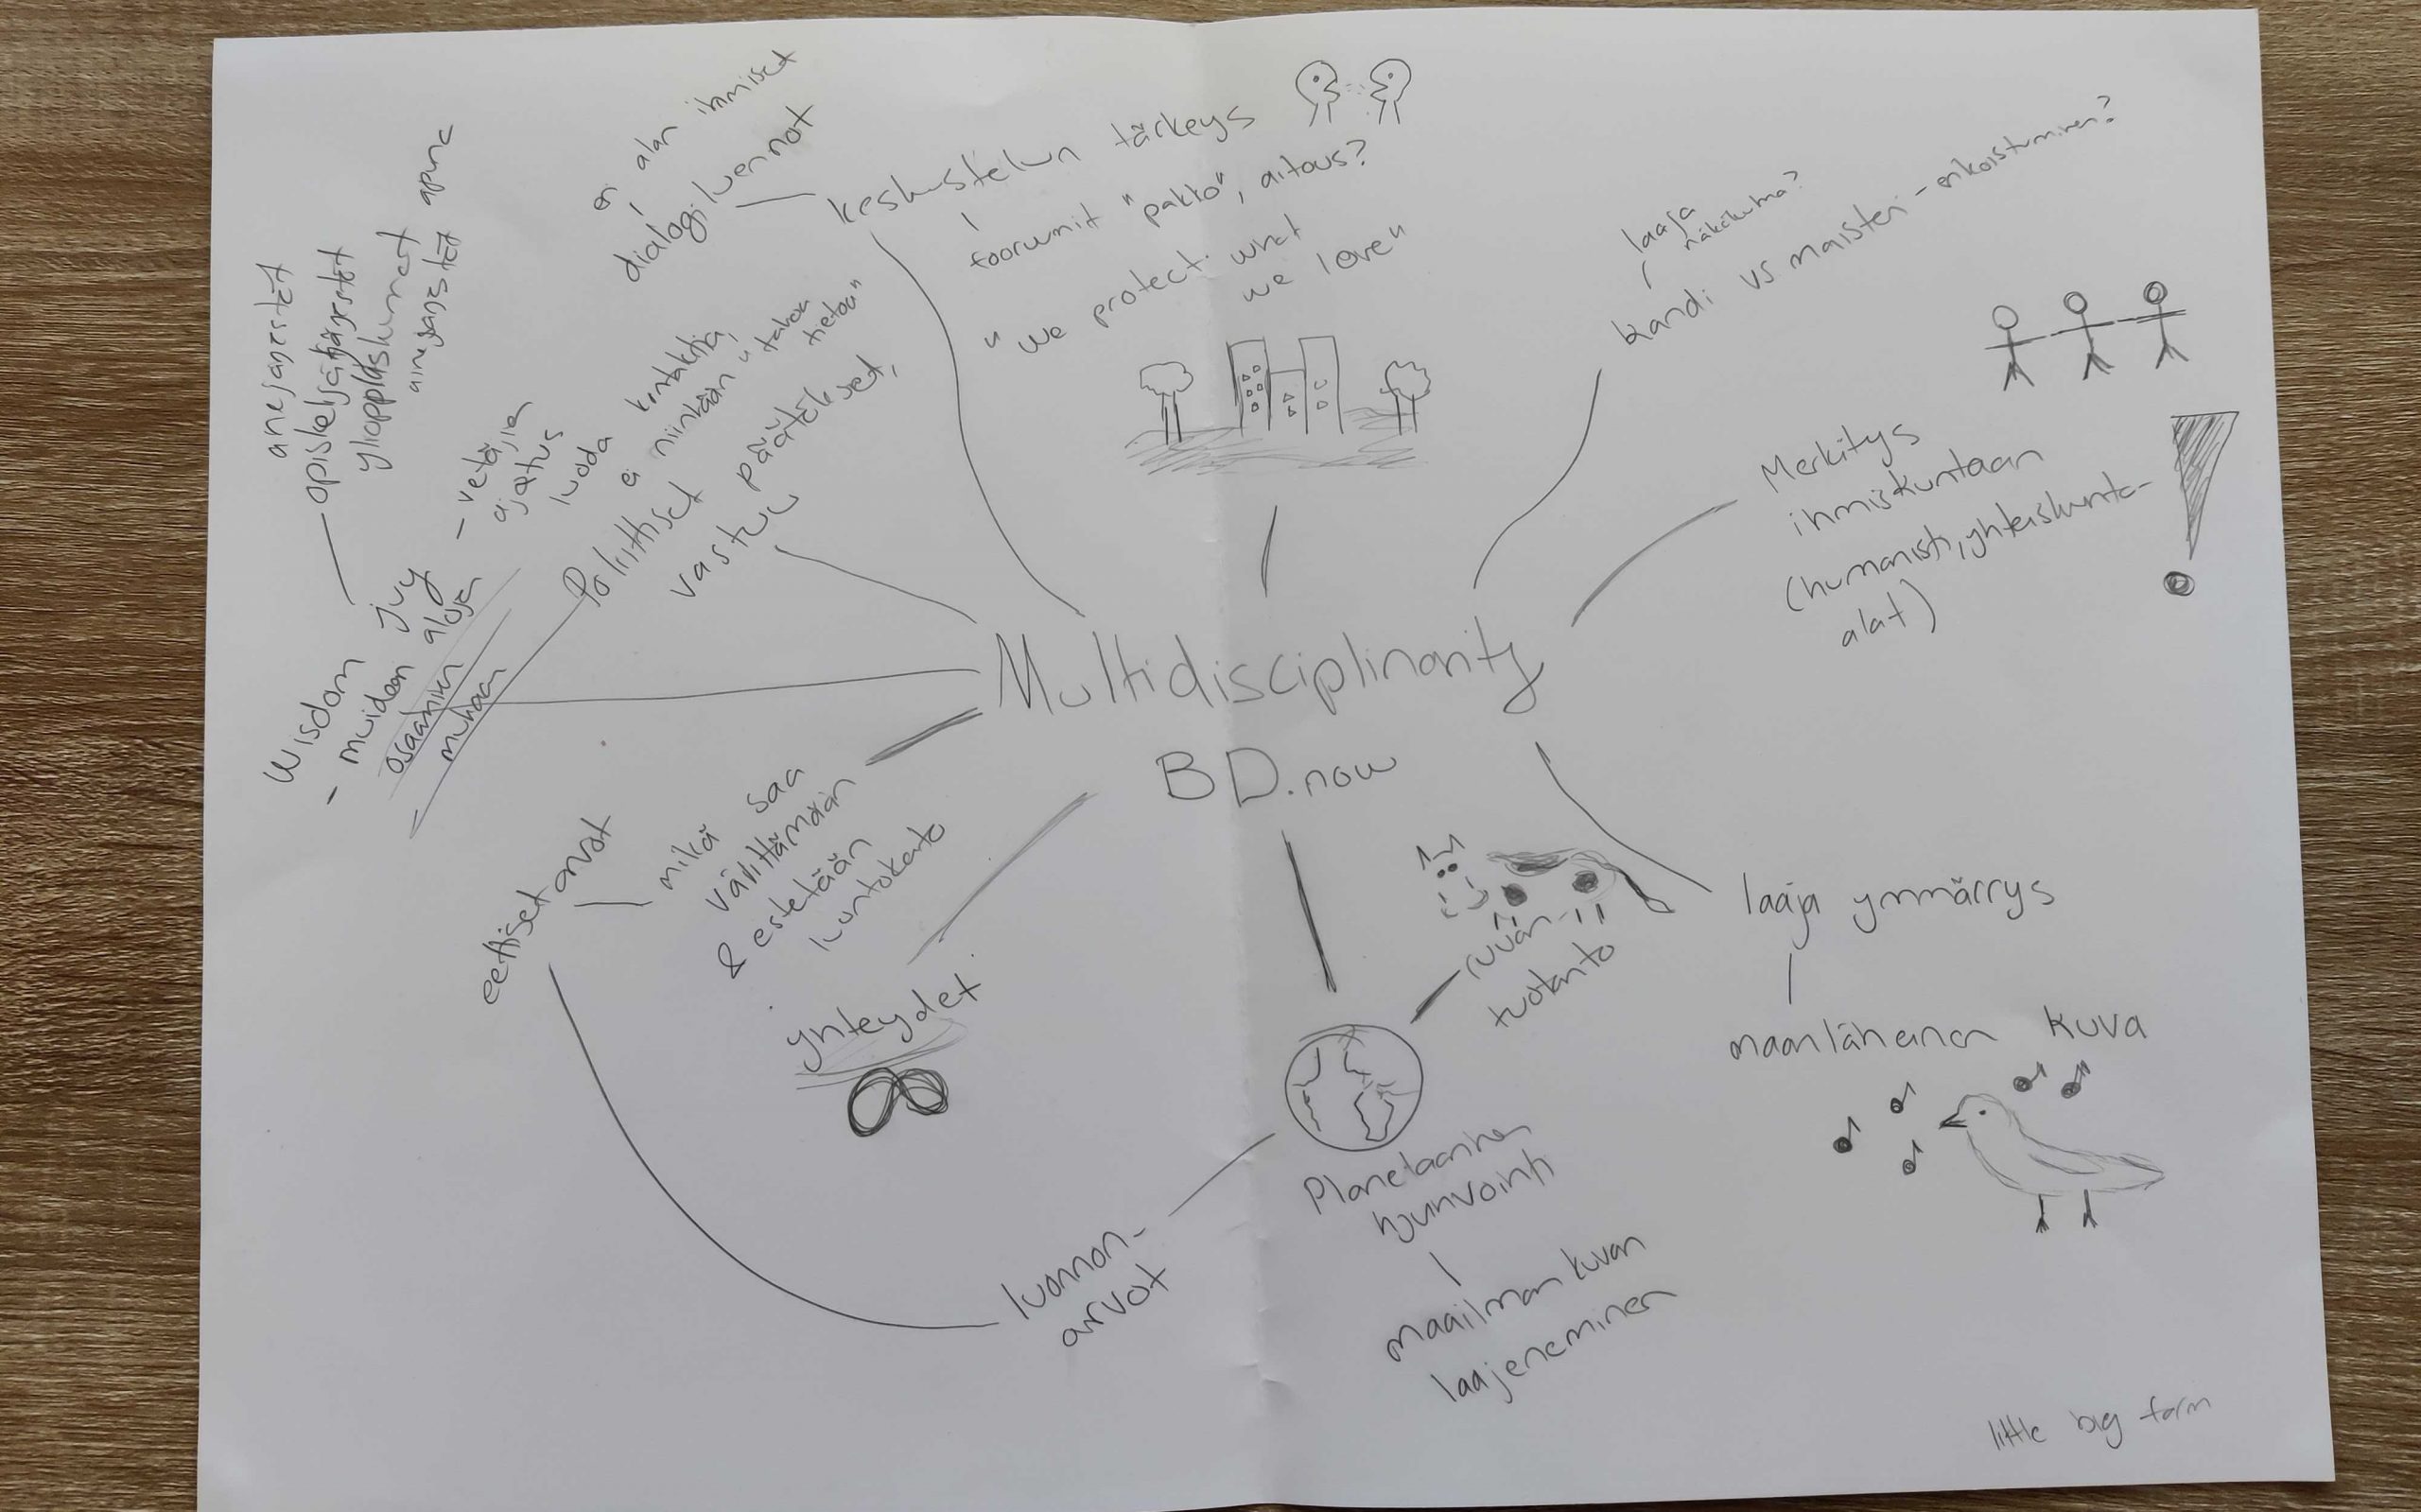 eri alan ihmiset
dialogiluennot
keskustelun tärkeys
foorumit "pakko", aitous?
"we protect what
we love"
laaja
näkökulma?
kandi vs maisteri - erikoistuminen?
Merkitys
ihmiskuntaan
(humanisti, yhteiskunta-
alat)
ainejärjestöt
opiskelijajärjestöt
ylioppilaskunnat
ainejärjestöt apuna
- vetäjien
ajatus
luoda kontaktia,
ei niinkään "takoa
tietoa"
Poliittiset päätökset,
vastuu
Wisdom jyy
- muiden aloja
osaamisen
mukaan
Multidisciplinarity
BD.now
eettiset arvot
mikä saa
välittämään
& estetään
luontokato
yhteydet
ruuan
tuotanto
laaja ymmärrys
maanläheinen kuva
Planetaarinen
hyvinvointi
maailman kuvan
laajeneminen
luonnon-
arvot
little big farm